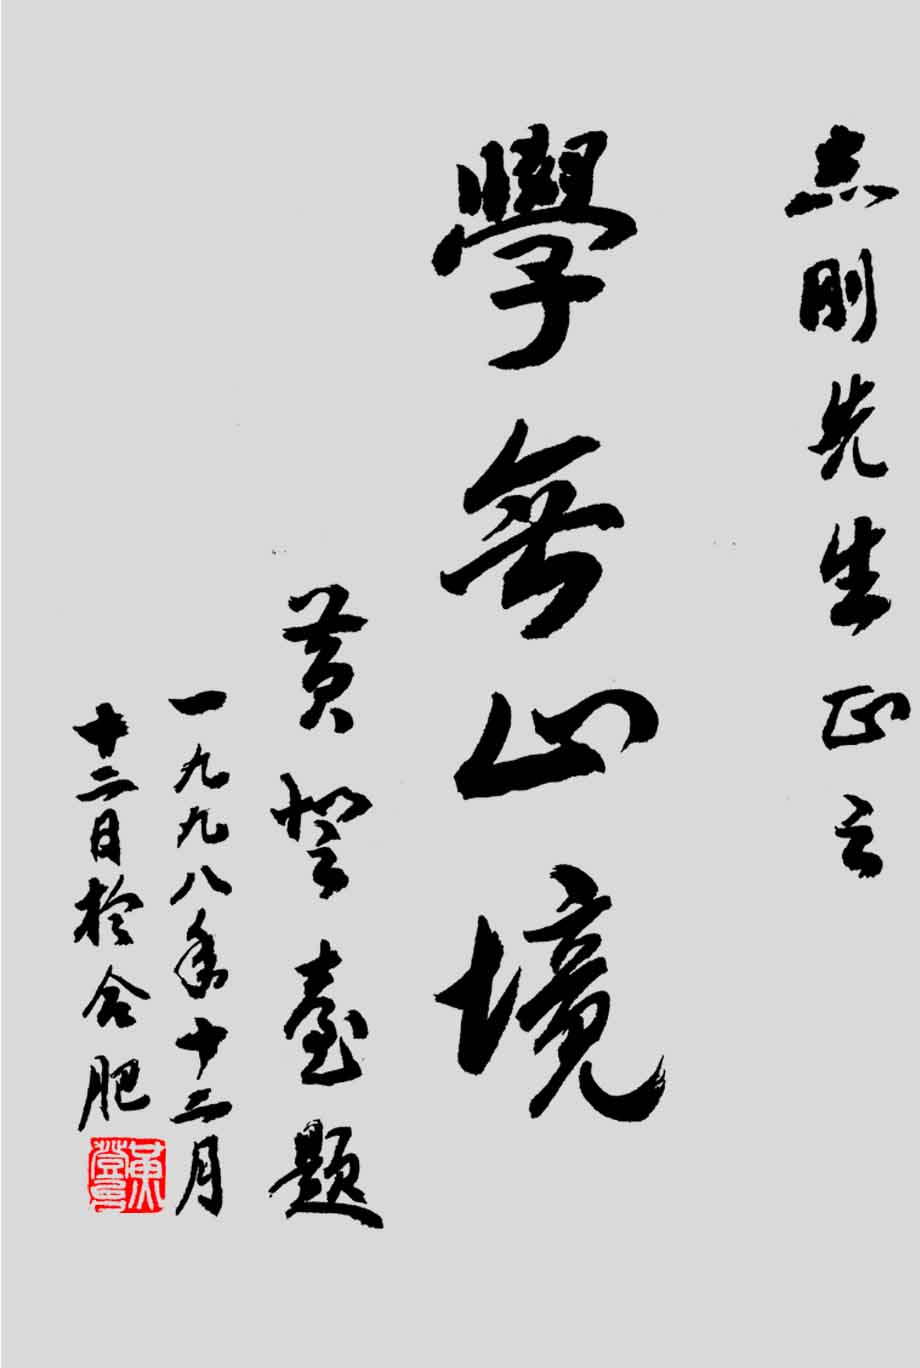 志刚先生正之
學無止境
黄臺题
一九九八年十二月
十二日於合肥